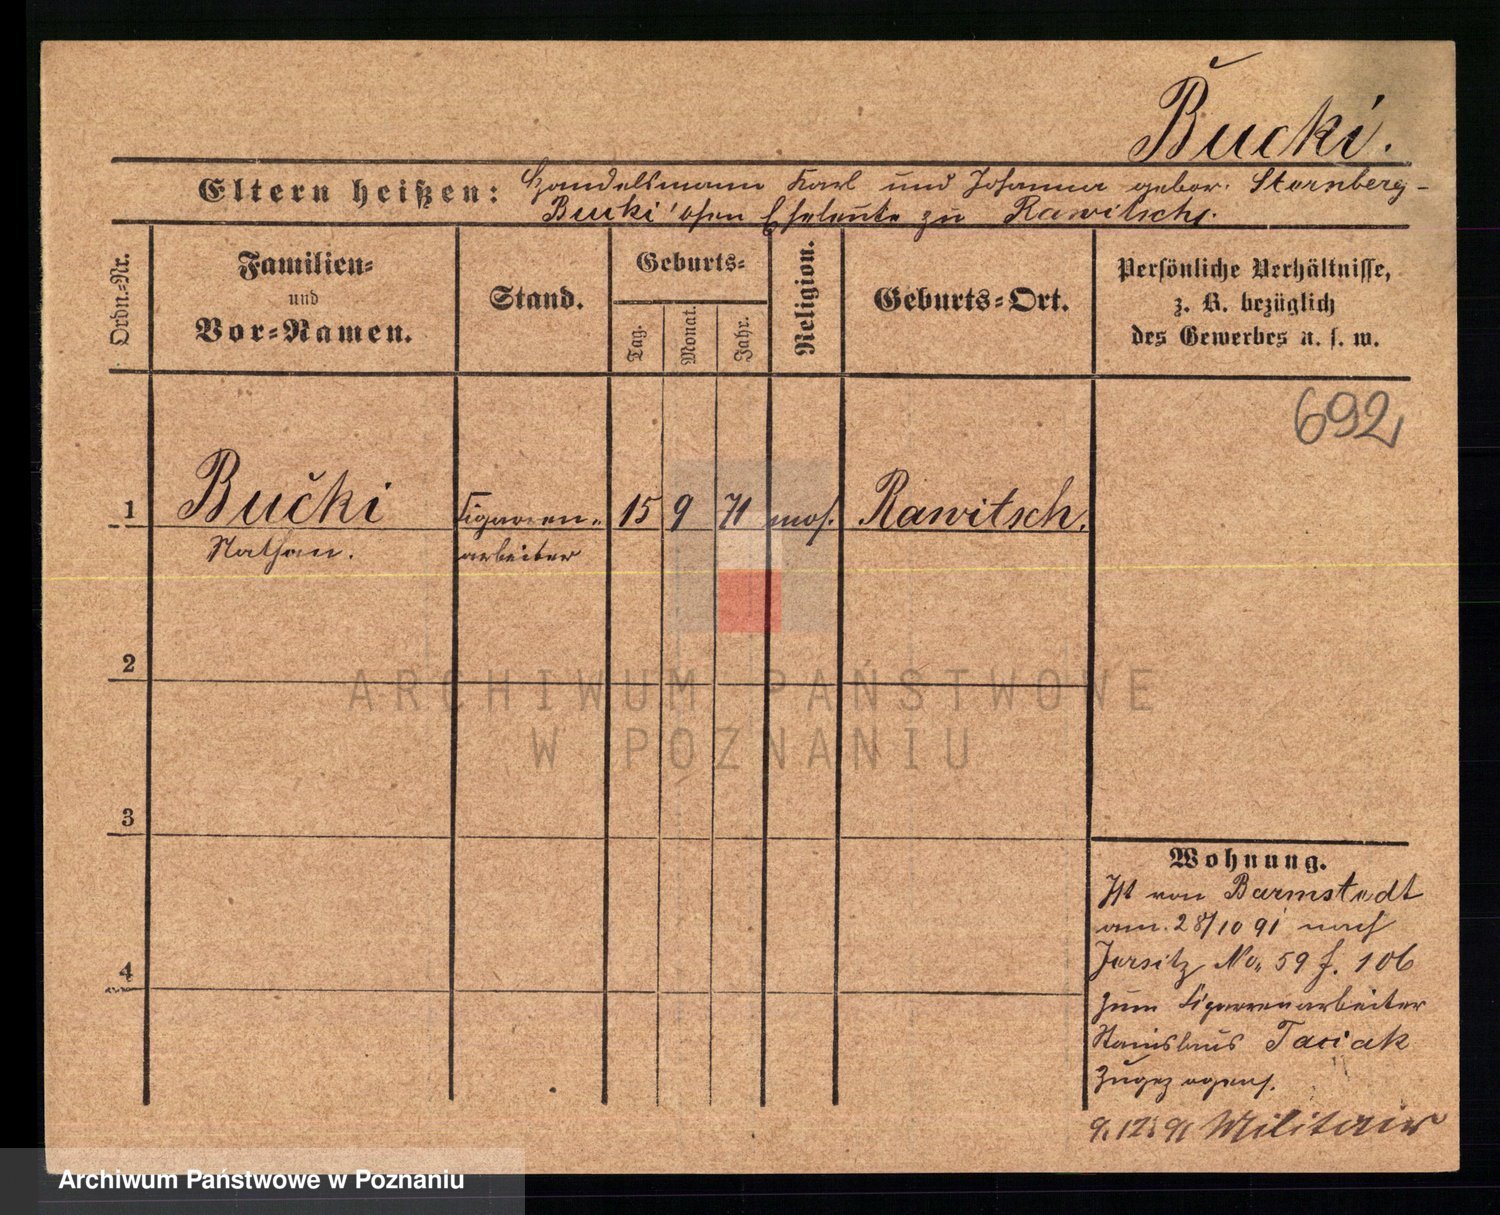 Bučki.
Eltern heißen: Handelsmann Karl und Johanna gebor. Sternberg-
Bucki'schen Eheleute zu Rawitsch.
Ordn.-Nr.
Familien-
und
Vor-Namen.
Stand.
Geburts-
Tag.
Monat.
Jahr.
Religion.
Geburts-Ort.
Persönliche Verhältnisse,
z. B. bezüglich
des Gewerbes u. s. w.
692
1 Bučki Cigarren- 15 9 71 mos. Rawitsch.
Nathan. arbeiter
2
3
4
Wohnung.
Ist von Barmstedt
am 28/10 91 nach
Jersitz No. 59 f. 106
zum Cigarrenarbeiter
Stanislaus Taciak
zugezogen.
9.12.91 Militair
ARCHIWUM PAŃSTWOWE
W POZNANIU
Archiwum Państwowe w Poznaniu